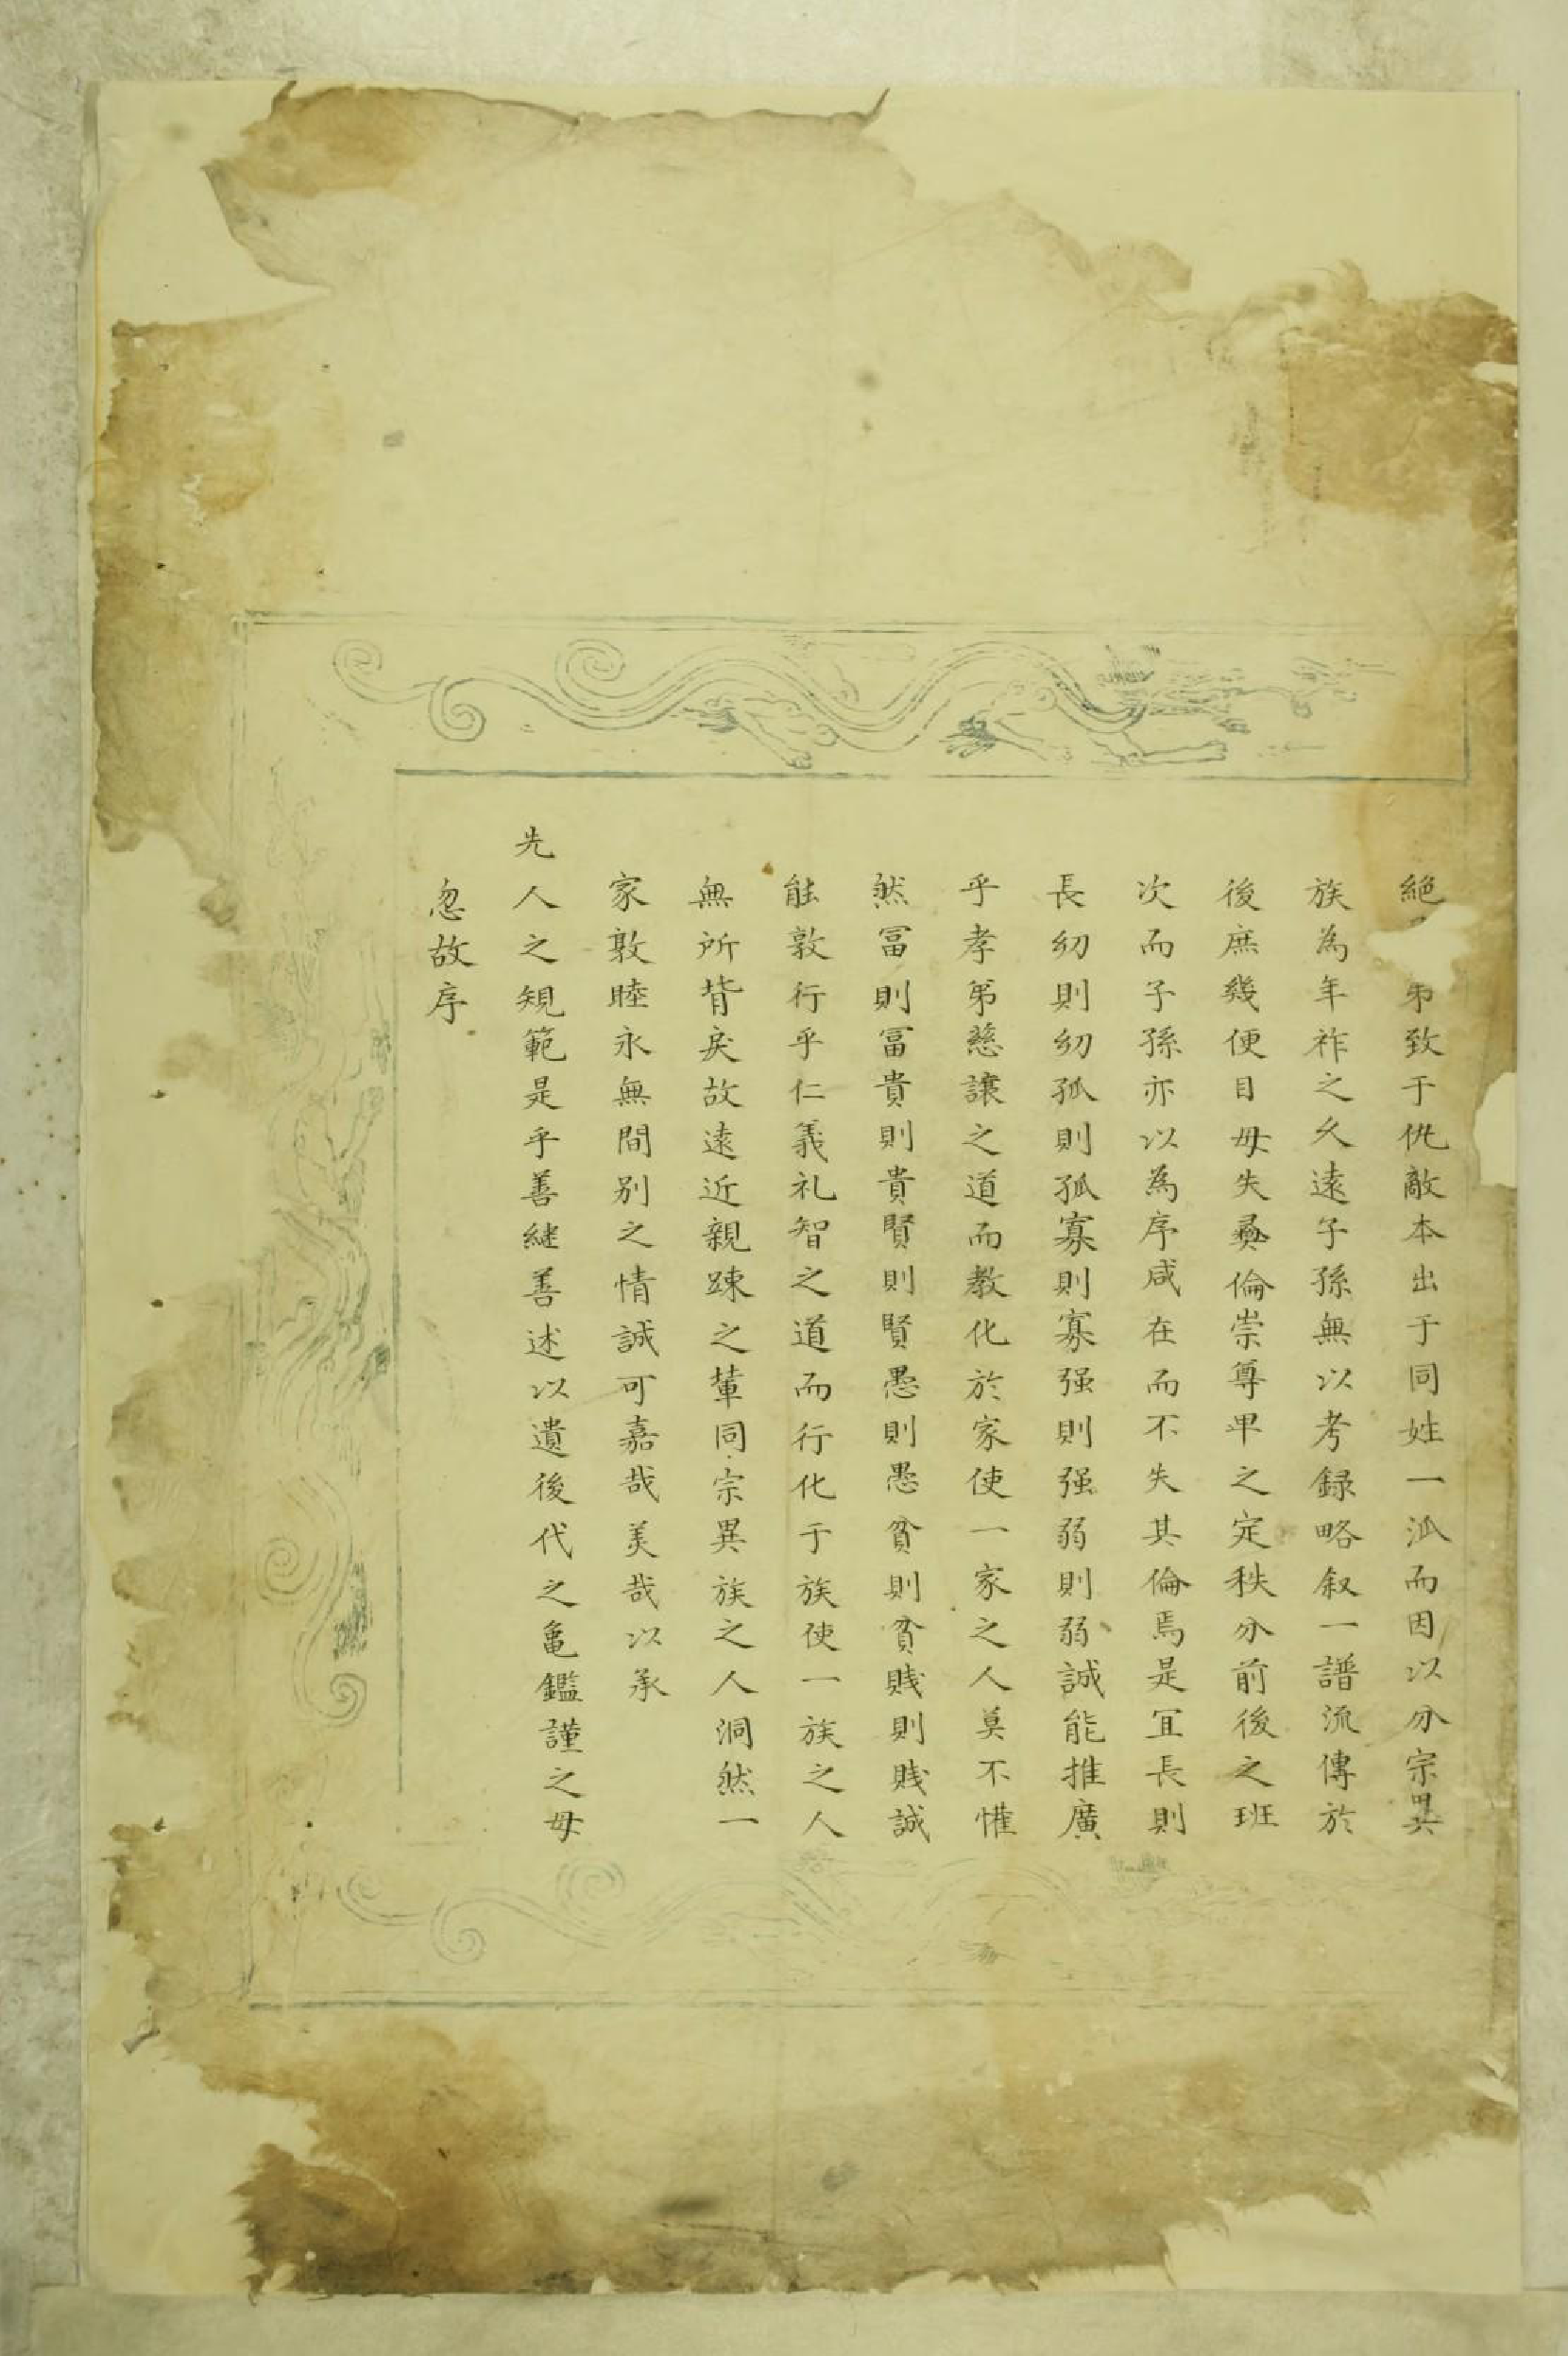 絶弟致于仇敵本出于同姓一派而因以分宗異
族為年祚之久遠子孫無以考録略叙一譜流傳於
後庶幾便目毋失彜倫崇尊卑之定秩分前後之班
次而子孫亦以為序咸在而不失其倫焉是冝長則
長幼則幼孤則孤寡則寡强則强弱則弱誠能推廣
乎孝弟慈讓之道而教化於家使一家之人莫不懽
然冨則冨貴則貴賢則賢愚則愚貧則貧賤則賤誠
能敦行乎仁義礼智之道而行化于族使一族之人
無所背戾故遠近親踈之輩同宗異族之人洞然一
家敦睦永無間別之情誠可嘉哉美哉以承
先人之規範是乎善継善述以遺後代之亀鑑謹之毋
忽故序